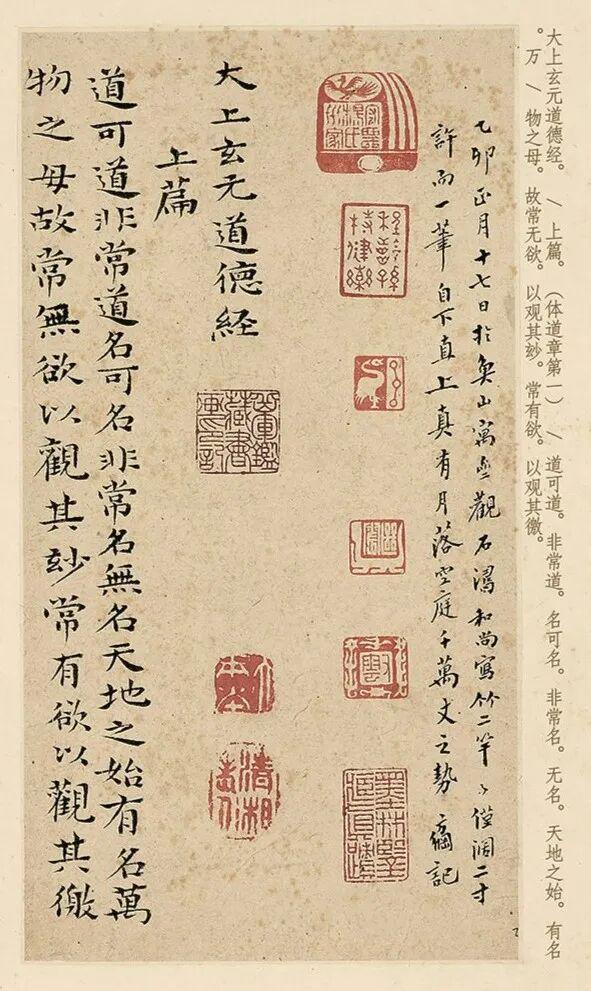 大上玄元道德经。 / 上篇。（体道章第一） / 道可道。非常道。名可名。非常名。无名。天地之始。有名
。万 / 物之母。故常无欲。以观其玅。常有欲。以观其徼。
乙卯正月十七日於奐山寓觀石濤和尚寫竹二竿々僅闊二寸
許而一筆自下直上真有月落空庭千萬丈之勢 記
大上玄元道德経
上篇
道可道非常道名可名非常名無名天地之始有名萬
物之母故常無欲以觀其玅常有欲以觀其徼